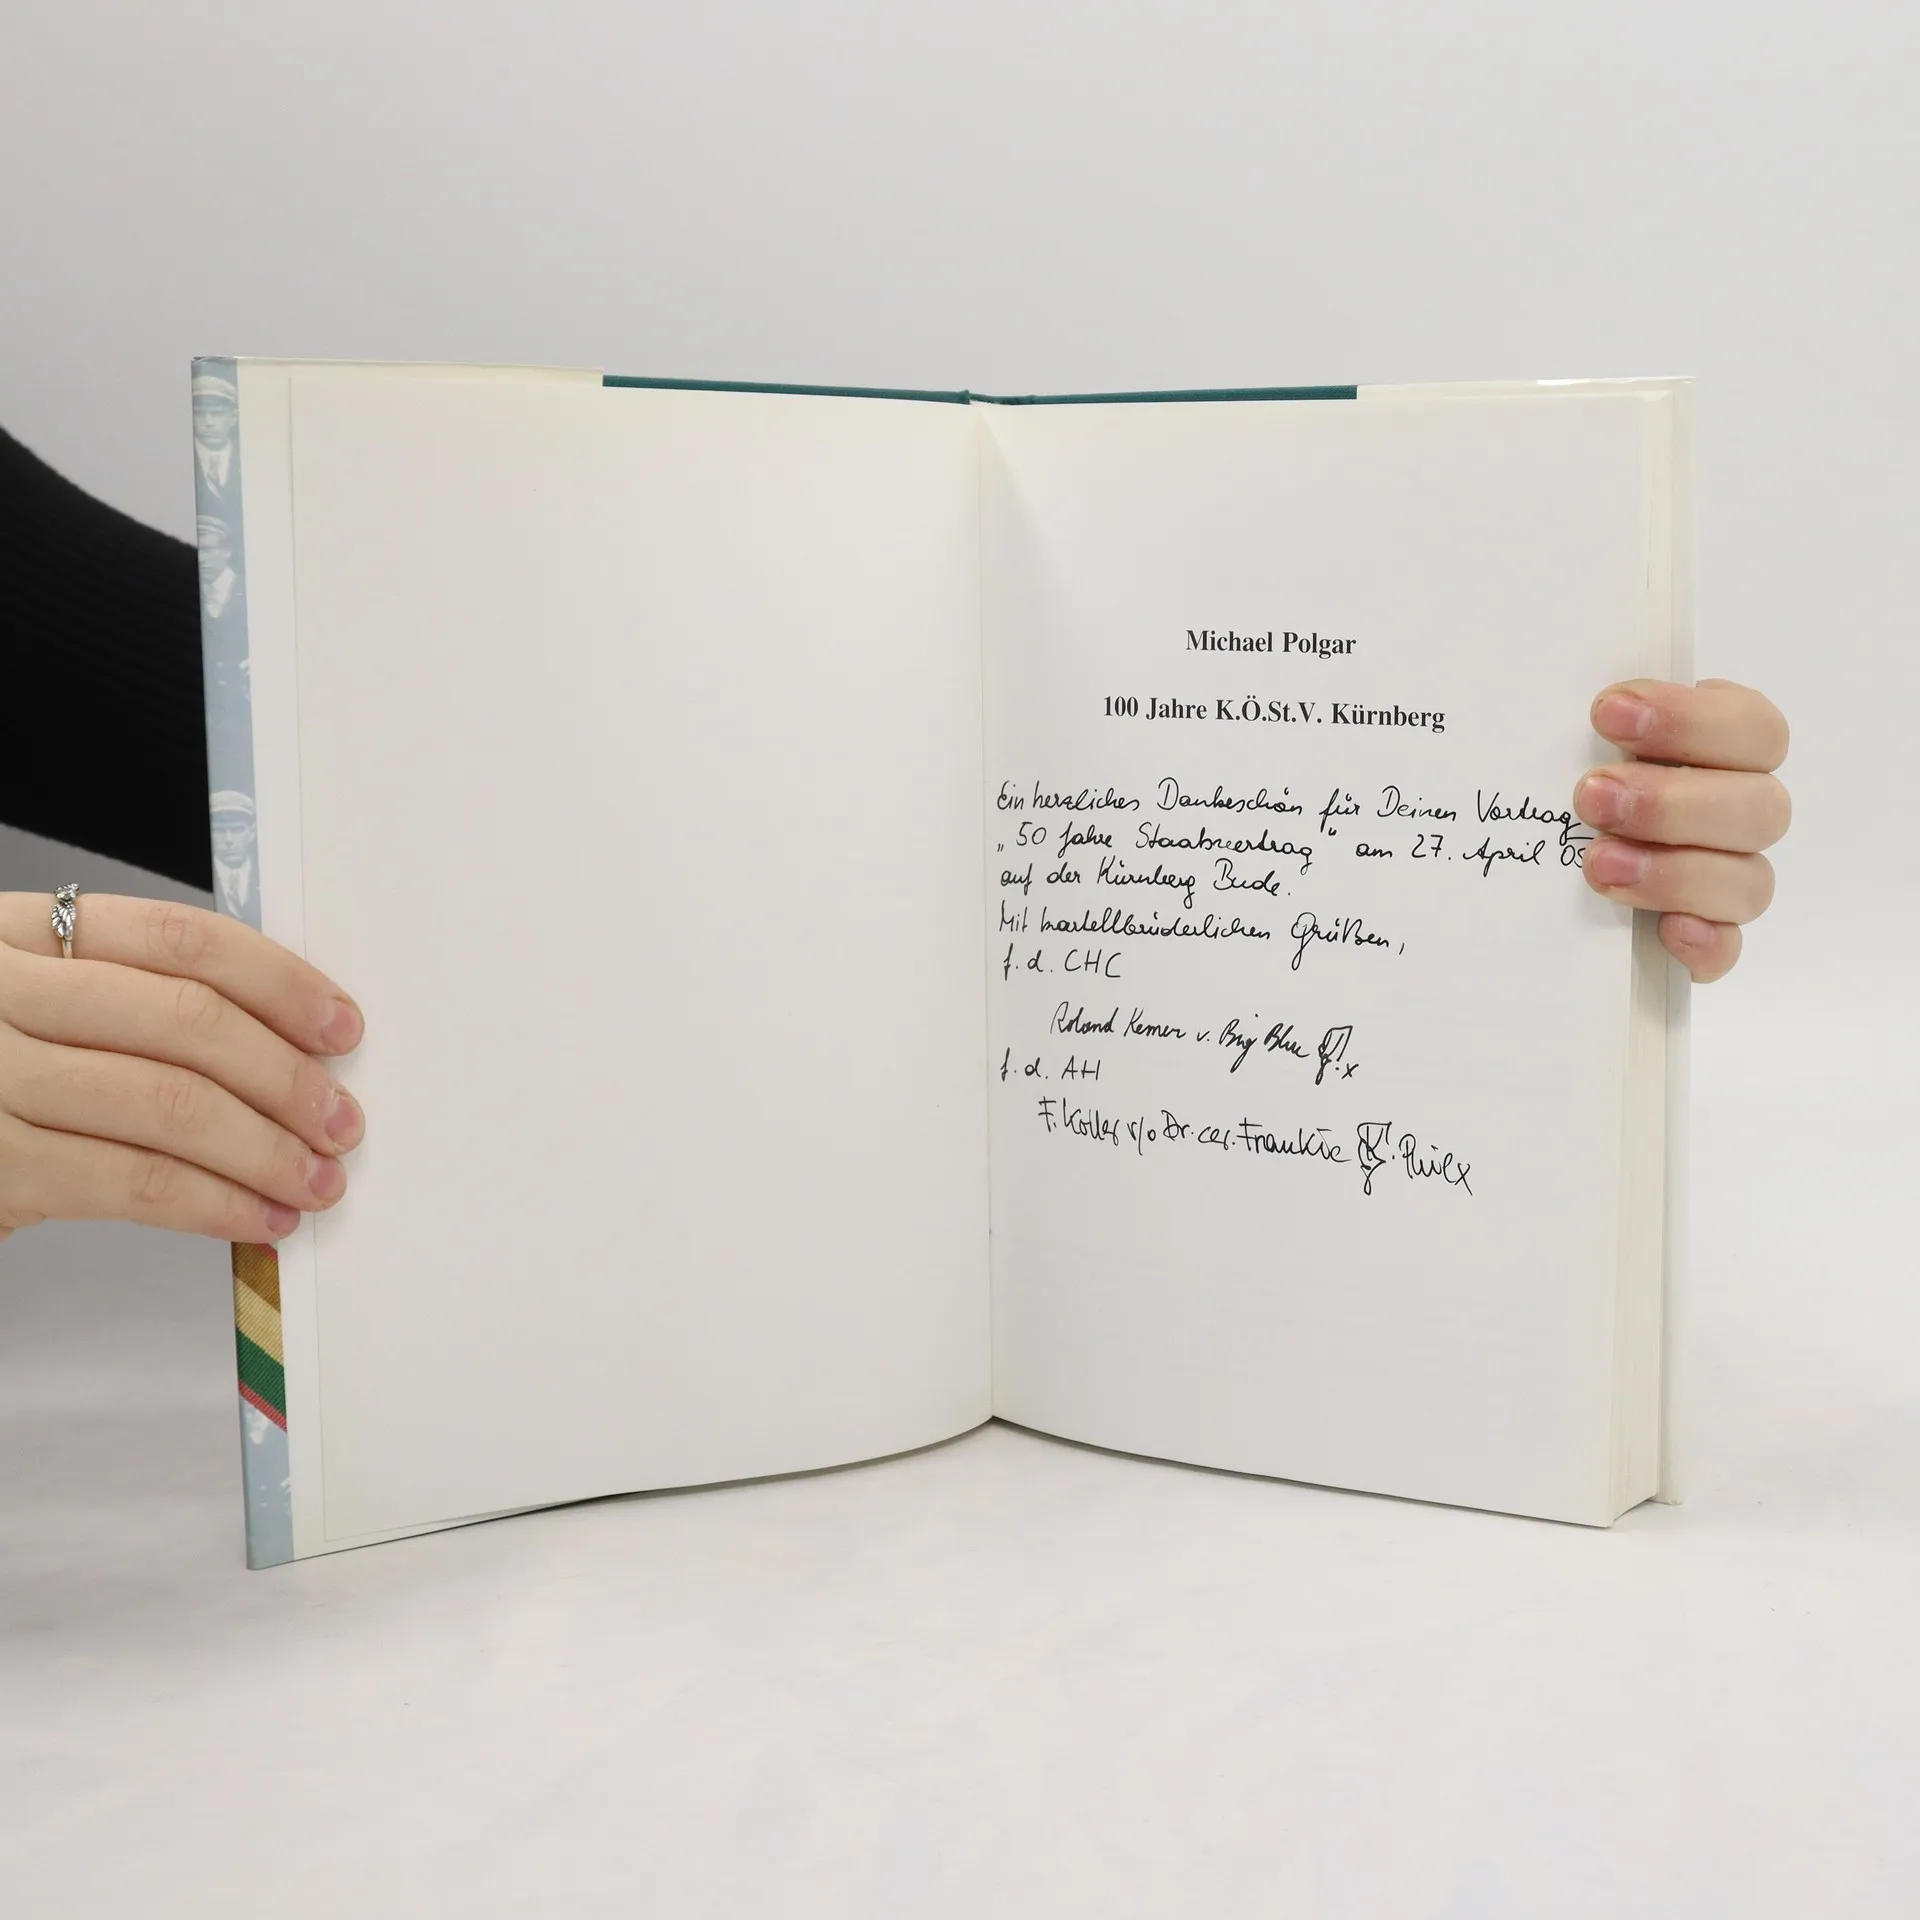 Michael Polgar
100 Jahre K.Ö.St.V. Kürnberg
Ein herzliches Dankeschön für Deinen Vortrag
„50 Jahre Staatsvertrag“ am 27. April 05
auf der Kürnberg Bude.
Mit kartellbrüderlichen Grüßen,
f. d. CHC
Roland Kemer v. Big Blue
f. d. AH
F. Koller v/o Dr. cer. Frankie Philx